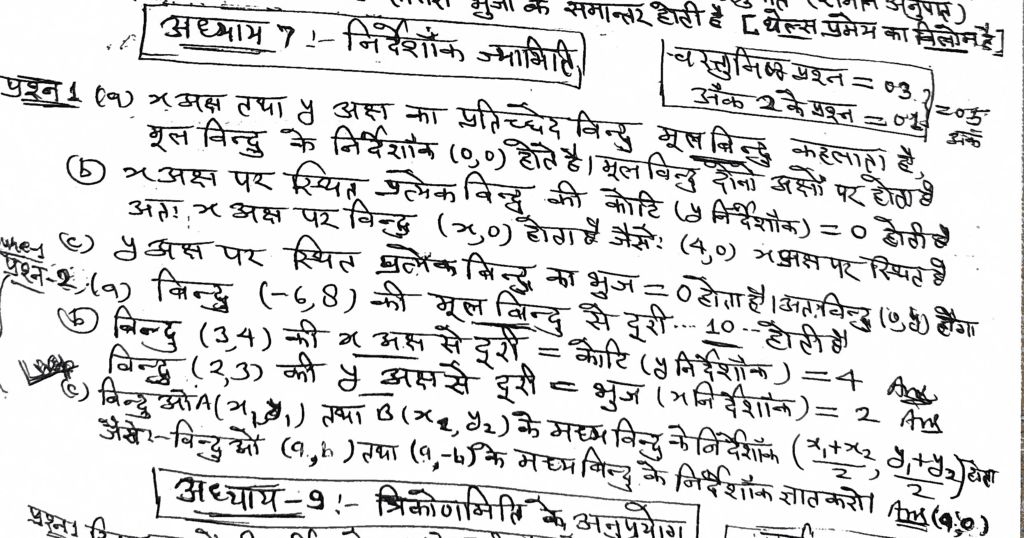 भुजा के समान्तर होती है [थेल्स प्रमेय का विलोम है]
अध्याय 7 :- निर्देशांक ज्यामिति
वस्तुनिष्ठ प्रश्न = 03
अंक 2 के प्रश्न = 01
= 05 अंक
प्रश्न 1 (a) x अक्ष तथा y अक्ष का प्रतिच्छेद बिन्दु मूल बिन्दु कहलाता है,
मूल बिन्दु के निर्देशांक (0,0) होते है। मूल बिन्दु दोनो अक्षों पर होता है
(b) x अक्ष पर स्थित प्रत्येक बिन्दु की कोटि (y निर्देशांक) = 0 होती है
अतः x अक्ष पर बिन्दु (x,0) होगा है जैसे: (4,0) x अक्ष पर स्थित है
(c) y अक्ष पर स्थित प्रत्येक बिन्दु का भुज = 0 होता है। अतः बिन्दु (0,y) होगा
प्रश्न-2, (a) बिन्दु (-6,8) की मूल बिन्दु से दूरी ... 10 ... होती है
(b) बिन्दु (3,4) की x अक्ष से दूरी = कोटि (y निर्देशांक) = 4 Ans
बिन्दु (2,3) की y अक्ष से दूरी = भुज (x निर्देशांक) = 2 Ans
(c) बिन्दुओ A(x₁,y₁) तथा B(x₂,y₂) के मध्य बिन्दु के निर्देशांक (x₁+x₂/2, y₁+y₂/2) होता
जैसे:- बिन्दुओं (a,b) तथा (a,-b) के मध्य बिन्दु के निर्देशांक ज्ञात करो। Ans (a,0)
अध्याय-9 :- त्रिकोणमिति के अनुप्रयोग
प्रश्न 1